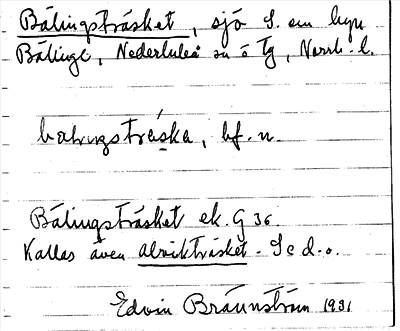 Bälingsträsket, sjö S. om byn
Bälinge, Nederluleå sn o tg, Norrb. l.
bälingsträska, bf. n.
Bälingsträsket ek. G 36
Kallas även Alvikträsket. Se d.o.
Edvin Brännström 1931